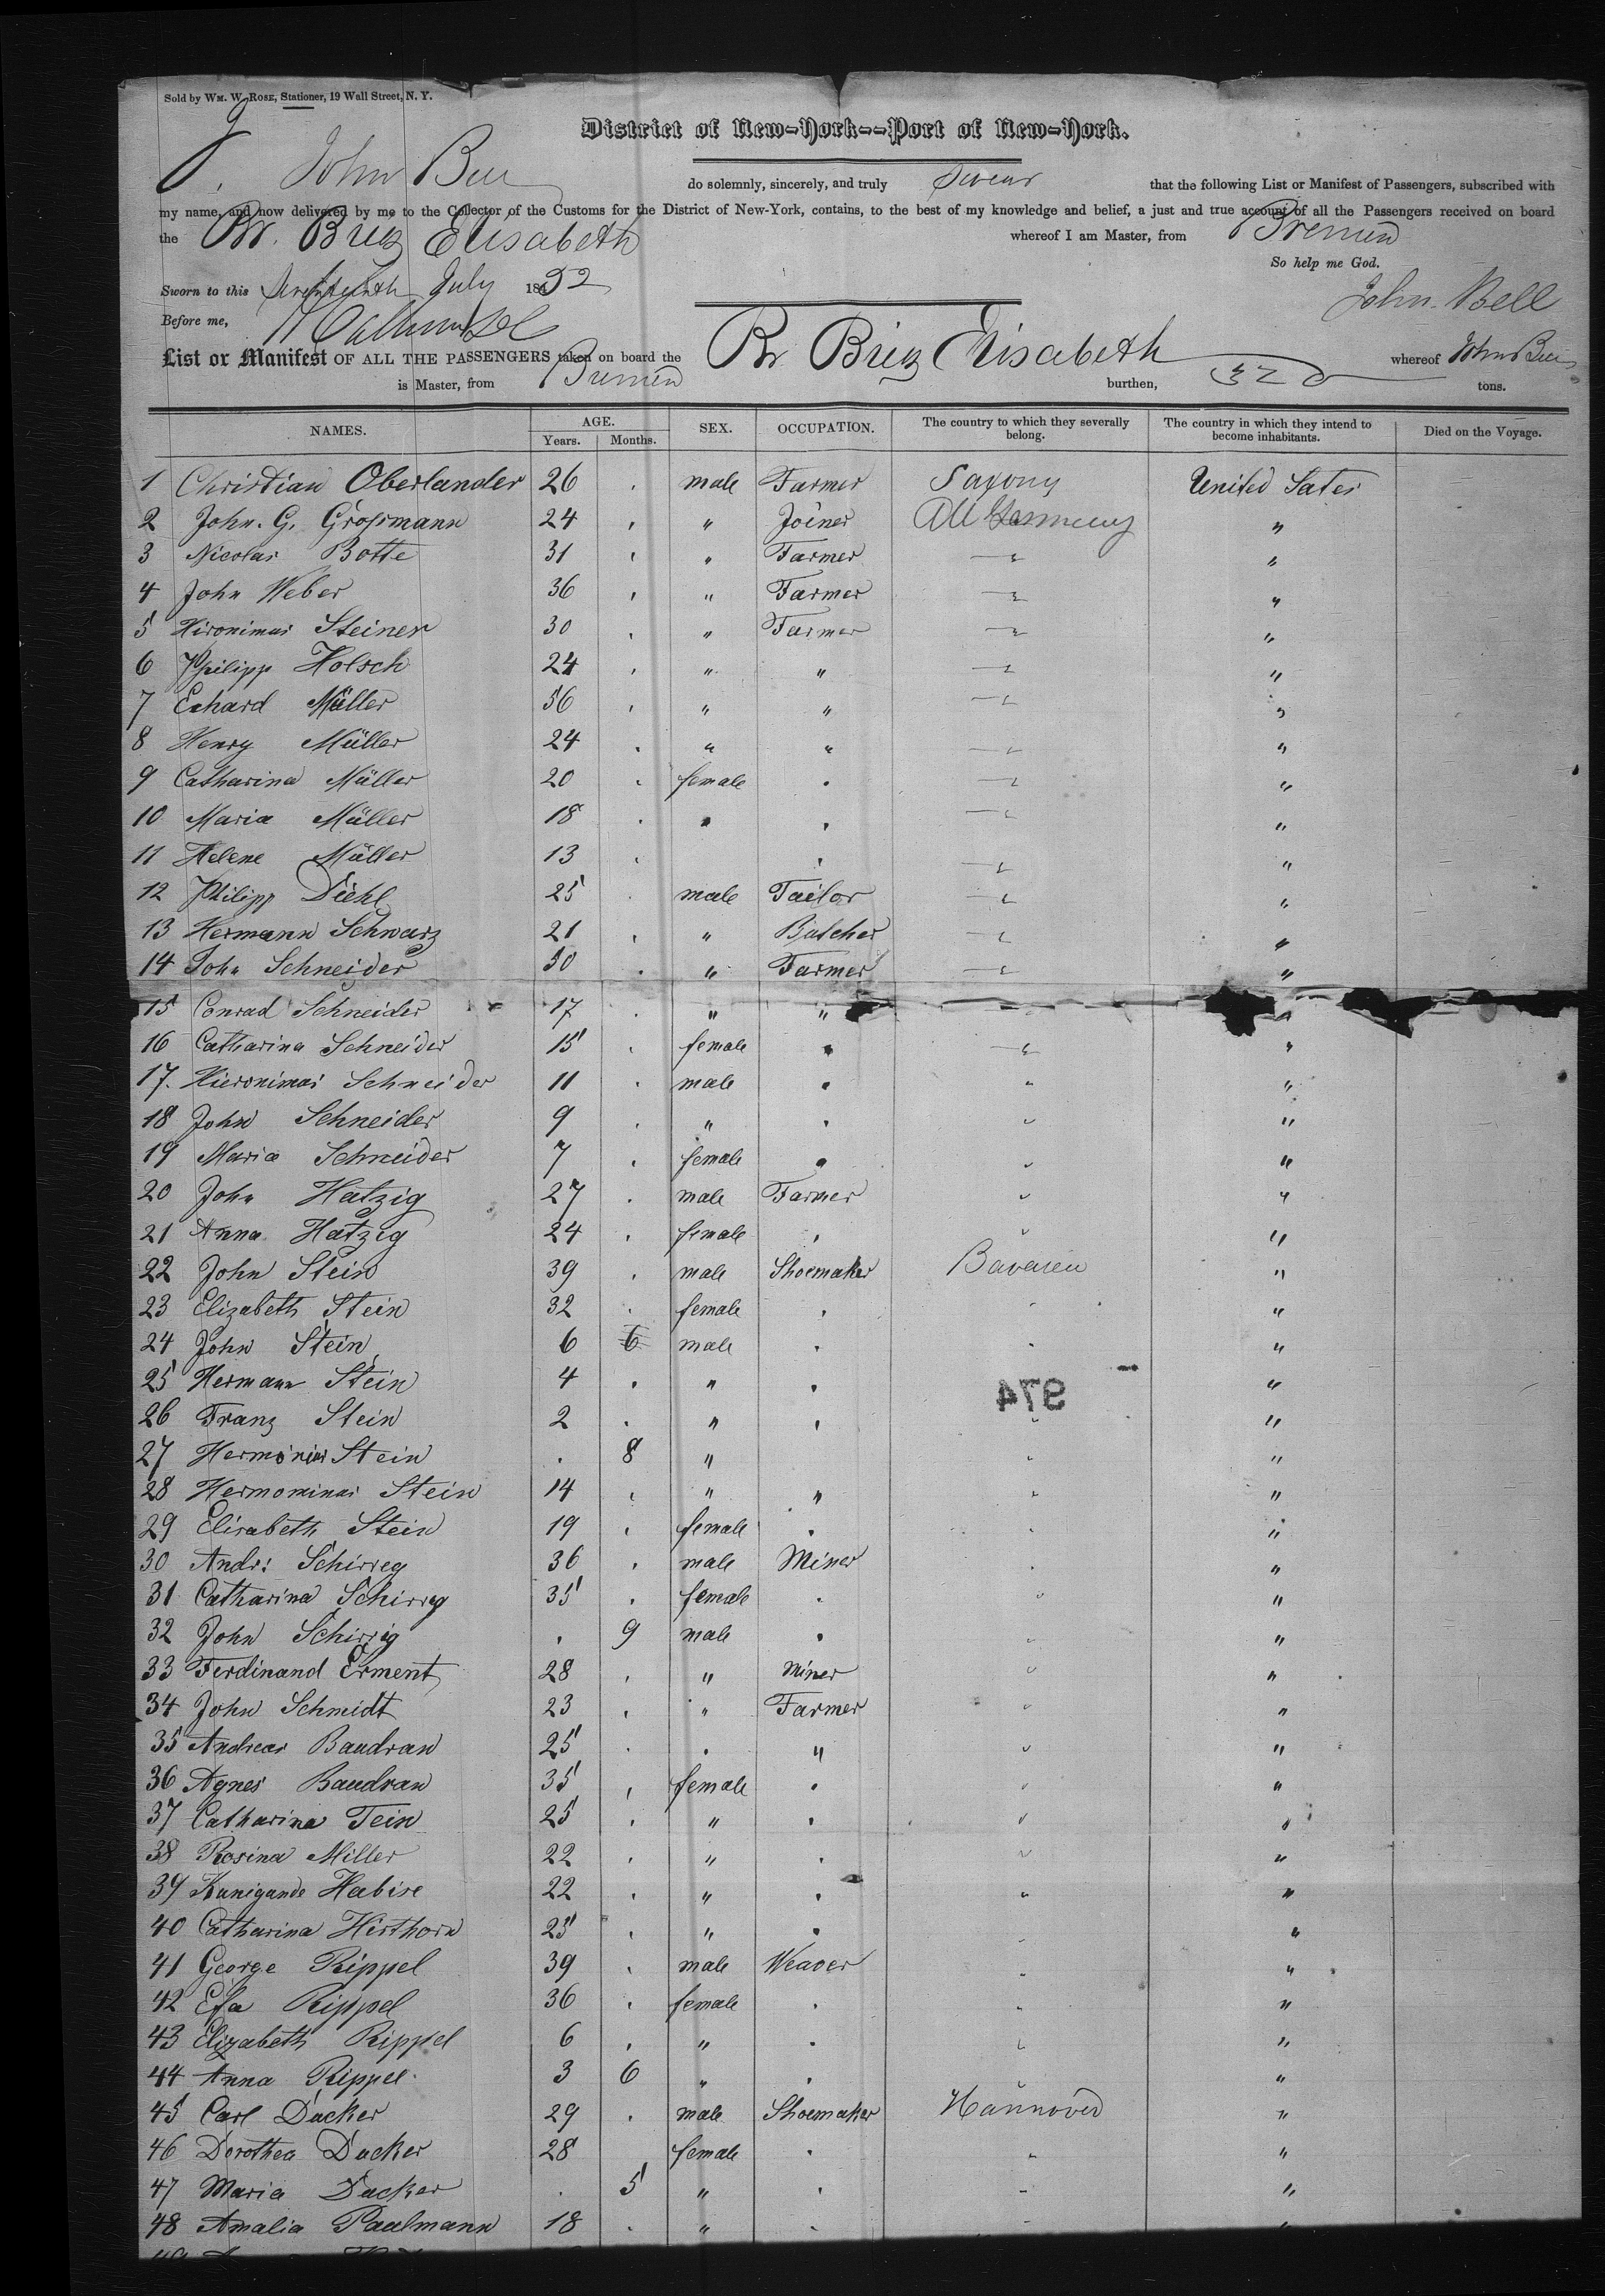 Sold by WM. W. ROSE, Stationer, 19 Wall Street, N. Y.
District of New-York--Port of New-York.
I, John Bell do solemnly, sincerely, and truly swear that the following List or Manifest of Passengers, subscribed with
my name, and now delivered by me to the Collector of the Customs for the District of New-York, contains, to the best of my knowledge and belief, a just and true account of all the Passengers received on board
the Br. Brig Elisabeth whereof I am Master, from Bremen
So help me God.
Sworn to this seventeenth July 1852
John Bell
Before me,
List or Manifest OF ALL THE PASSENGERS taken on board the Br Brig Elisabeth whereof John Bell
is Master, from Bremen burthen, 320 tons.
NAMES. AGE. Years. Months. SEX. OCCUPATION. The country to which they severally belong. The country in which they intend to become inhabitants. Died on the Voyage.
1 Christian Oberlander 26 . male Farmer Saxony United Sates
2 John. G. Grossmann 24 . " Joiner All Germany "
3 Nicolas Botte 31 . " Farmer " "
4 John Weber 36 . " Farmer " "
5 Hironimus Steiner 30 . " Farmer " "
6 Philipp Holsch 24 . " " " "
7 Erhard Müller 56 . " " " "
8 Henry Müller 24 . " " " "
9 Catharina Müller 20 . female . " "
10 Maria Müller 18 . " . " "
11 Helene Müller 13 . . " "
12 Philipp Diehl 25 . male Tailor " "
13 Hermann Schwarz 21 . " Butcher " "
14 John Schneider 50 . " Farmer " "
15 Conrad Schneider 17 . " " "
16 Catharina Schneider 15 . female . " "
17. Hieronimus Schneider 11 . male . " "
18 John Schneider 9 . " . " "
19 Maria Schneider 7 . female . " "
20 John Hatzig 27 . male Farmer " "
21 Anna Hatzig 24 . female . " "
22 John Stein 39 . male Shoemaker Bavaren "
23 Elizabeth Stein 32 . female . " "
24 John Stein 6 6 male . " "
25 Hermann Stein 4 . " . "
974
26 Franz Stein 2 . " . " "
27 Stein . 8 " " "
28 Stein 14 . " " " "
29 Elisabeth Stein 19 . female . " "
30 Andr: Schirreg 36 . male Miner " "
31 Catharina Schirreg 35 . female . " "
32 John Schirrig . 9 male . " "
33 Ferdinand Erment 28 . " Miner " "
34 John Schmidt 23 . " Farmer " "
35 Andreas Baudran 25 . . " " "
36 Agnes Baudran 35 . female . " "
37 Catharina Tein 25 . " . " "
38 Rosina Miller 22 . " . " "
39 Kunigande Habire 22 . " . " "
40 Catharina Hirthorn 25 . " . " "
41 George Rippel 39 . male Weaver " "
42 Efa Rippel 36 . female . " "
43 Elizabeth Rippel 6 . " . " "
44 Anna Rippel 3 6 " . " "
45 Carl Dücker 29 . male Shoemaker Hannover "
46 Dorothea Ducker 28 female . " "
47 Maria Ducker . 5 " . " "
48 Amalia Paulmann 18 . " . " "